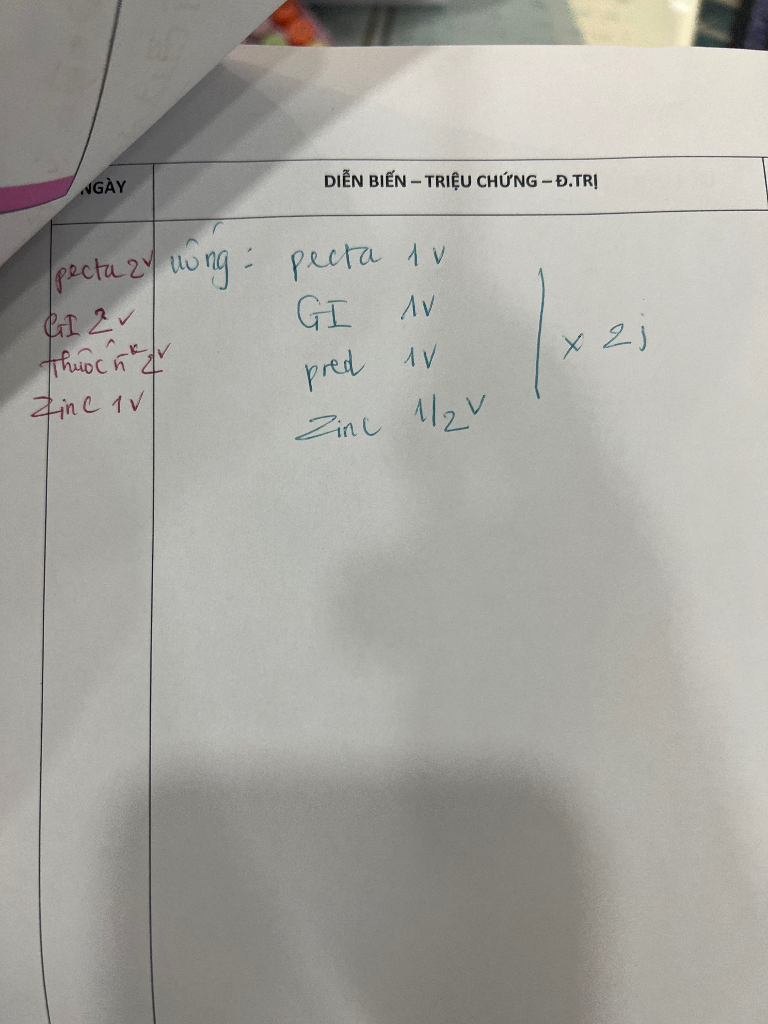 NGÀY
DIỄN BIẾN – TRIỆU CHỨNG – Đ.TRỊ
pecta 2v
GI 2v
Thuốc 2v
Zinc 1v
uống: pecta 1v
GI 1v
pred 1v
Zinc 1/2v
x 2j